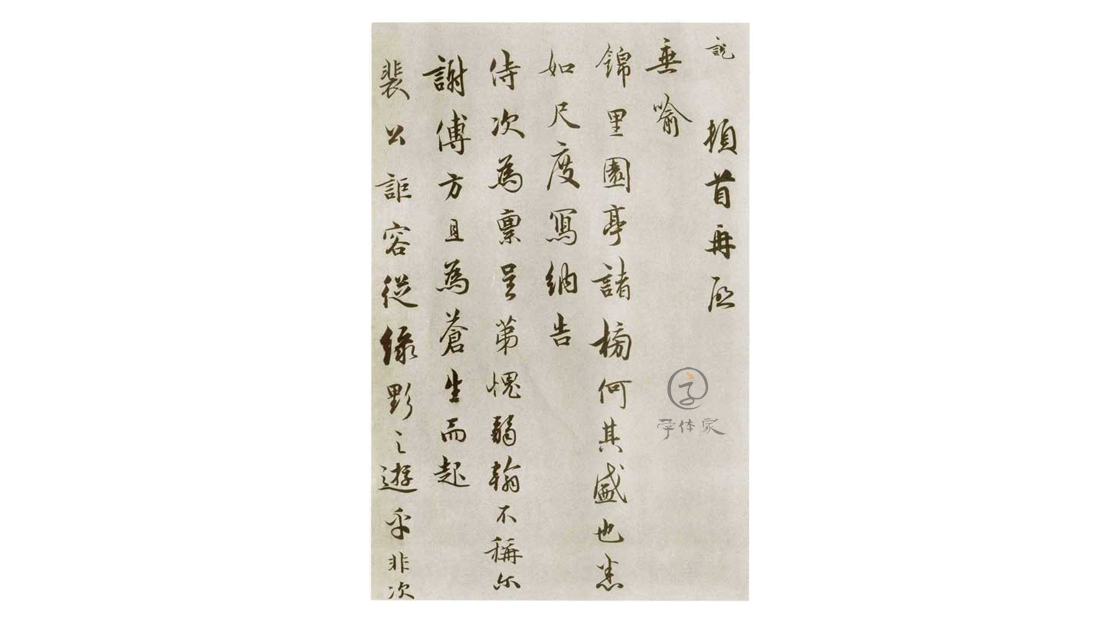 說 頓首再啟
垂喻
錦里園亭諸榜何其盛也悉
如尺度寫納告
侍次為稟呈第愧弱翰不稱尔
謝傅方且為蒼生而起
裴公詎容從綠野之遊乎非次
字体家